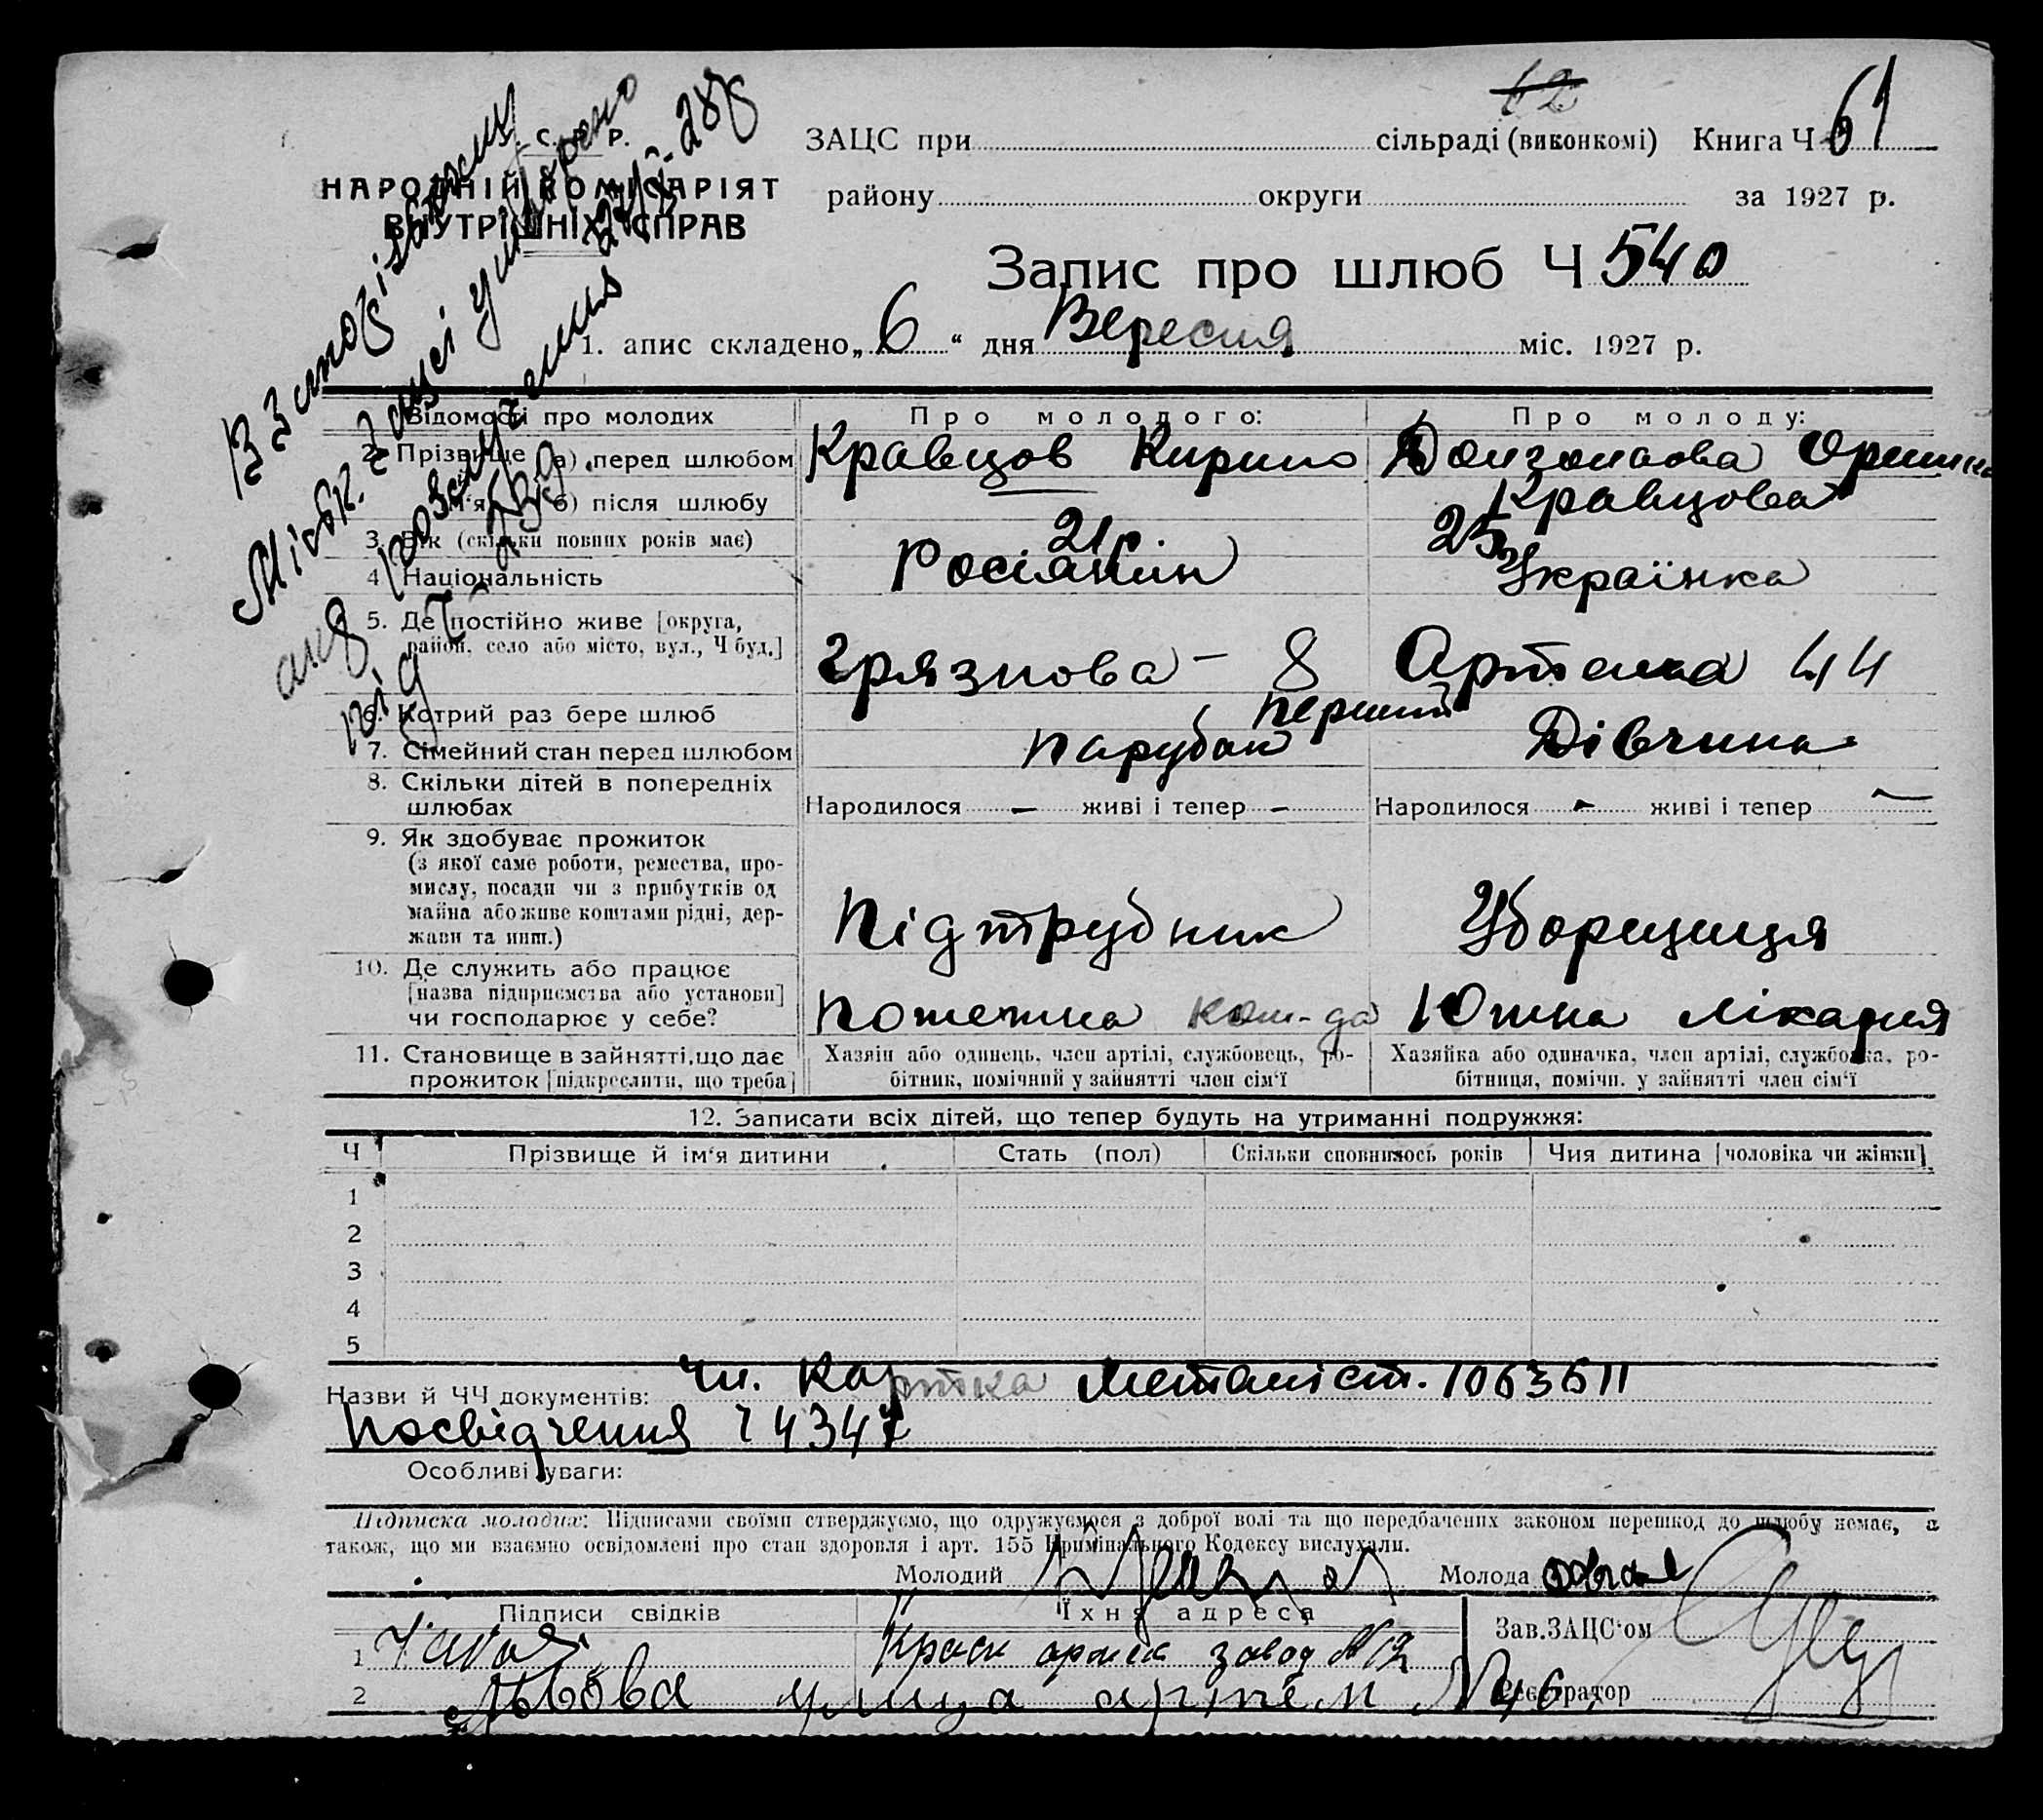 62
ЗАЦС при сільраді (виконкомі) Книга Ч 61
району округи за 1927 р.
С. Р. Р.
НАРОДНІЙ КОМІСАРІЯТ
ВНУТРІШНІХ СПРАВ
Запис про шлюб Ч 540
1. апис складено „ 6 “ дня Вересня міс. 1927 р.
Відомості про молодих Про молодого: Про молоду:
2. Прізвище а) перед шлюбом Кравцов Кирило Орина
м‘я б) після шлюбу Кравцова
3. Вік (скільки повних років має) 21р. 25
4 Національність Росіянин Українка
5. Де постійно живе [округа,
район, село або місто, вул., Ч буд.] Грязнова - 8 Артема 44
6. Котрий раз бере шлюб перший
7. Сімейний стан перед шлюбом парубок Дівчина
8. Скільки дітей в попередніх
шлюбах Народилося — живі і тепер — Народилося - живі і тепер —
9. Як здобуває прожиток
(з якої саме роботи, ремества, про-
мислу, посади чи з прибутків од
майна або живе коштами рідні, дер-
жави та инш.) Підтрубник Уборщиця
10. Де служить або працює
[назва підприємства або установи]
чи господарює у себе? Пожежна ком-да Южна лікарня
11. Становище в зайнятті, що дає
прожиток [підкреслити, що треба]
Хазяїн або одинець, член артілі, службовець, ро-
бітник, помічний у зайнятті член сім‘ї
Хазяйка або одиначка, член артілі, службовка, ро-
бітниця, помічн. у зайнятті член сім‘ї
12. Записати всіх дітей, що тепер будуть на утриманні подружжя:
Ч Прізвище й ім‘я дитини Стать (пол) Скільки сповнилось років Чия дитина [чоловіка чи жінки]
1
2
3
4
5
Назви й ЧЧ документів: Чл. Картка Металіст. 1063611
Посвідчення Ч 4347
Особливі уваги:
Підписка молодих: Підписами своїми стверджуємо, що одружуємося з доброї волі та що передбачених законом перешкод до шлюбу немає, а
також, що ми взаємно освідомлені про стан здоровля і арт. 155 Кримінального Кодексу вислухали.
Молодий Молода
Підписи свідків Їхня адреса Зав.ЗАЦС‘ом
1 завод №12
2 Львова улица артем № 46 Реєстратор